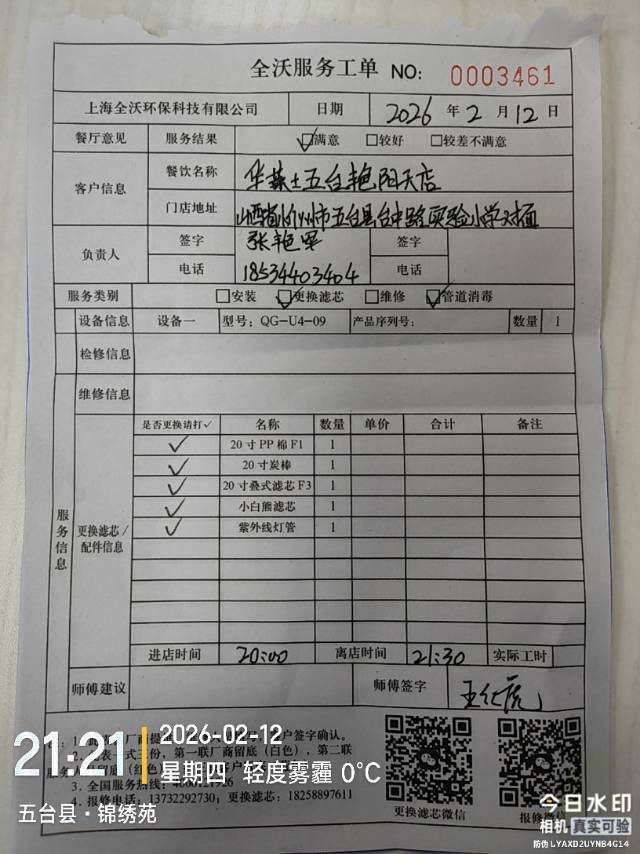 全沃服务工单 NO: 0003461
上海全沃环保科技有限公司 日期 2026 年 2 月 12 日
餐厅意见 服务结果 ☑满意 □较好 □较差不满意
客户信息 餐饮名称 华莱士五台艳阳天店
门店地址 山西省忻州市五台县台中路实验小学对面
负责人 签字 张艳军 签字
电话 18534403404 电话
服务类别 □安装 ☑更换滤芯 □维修 ☑管道消毒
设备信息 设备一 型号: QG-U4-09 产品序列号: 数量 1
检修信息
维修信息
服务信息
更换滤芯/配件信息
是否更换请打✓ 名称 数量 单价 合计 备注
✓ 20寸PP棉F1 1
✓ 20寸炭棒 1
✓ 20寸叠式滤芯F3 1
✓ 小白熊滤芯 1
✓ 紫外线灯管 1
进店时间 20:00 离店时间 21:30 实际工时
师傅建议 师傅签字
客户签字确认。
式三份，第一联厂商留底（白色），第二联
3.全国服务热线:
4.报修电话: 13732292730; 更换滤芯: 18258897611
更换滤芯微信 报修微信
21:21 2026-02-12
星期四 轻度雾霾 0°C
五台县·锦绣苑
今日水印
相机 真实可验
防伪 LYAXD2UYNB4G14